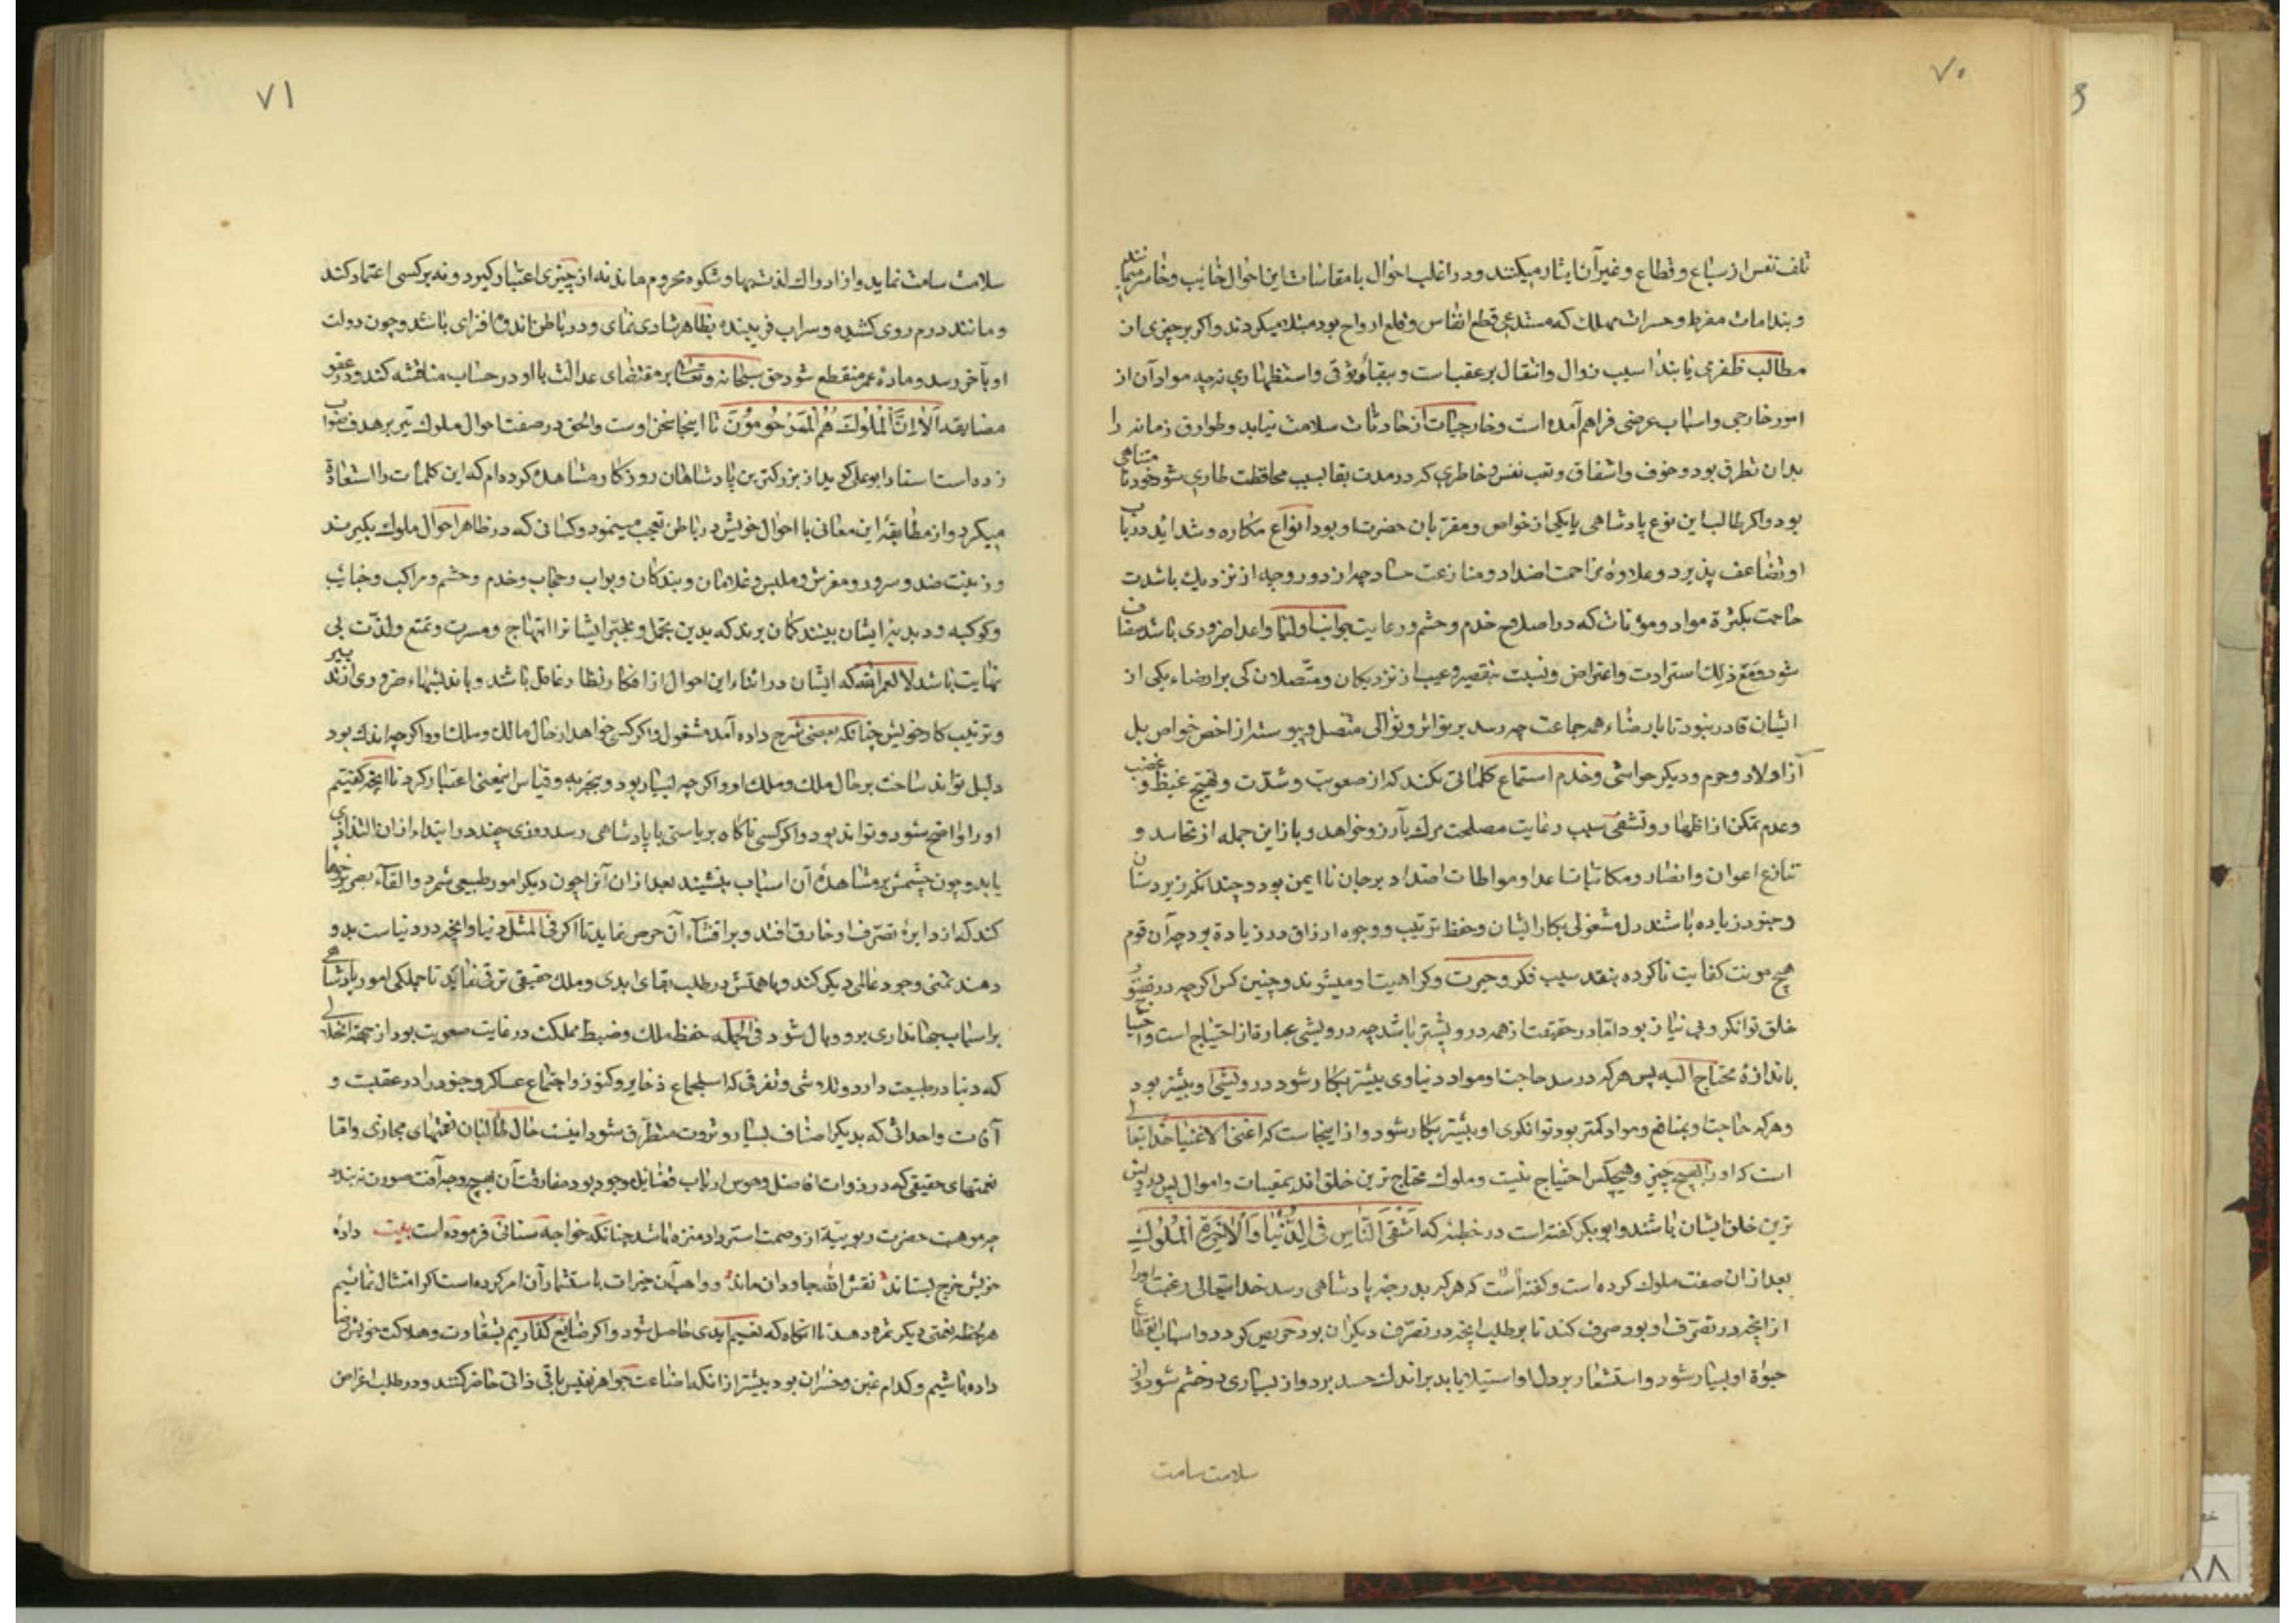 ٧٠
تلف نفس از سباع و قطاع و غیر آن ایثار میکنند و در اغلب احوال با مقاسات این احوال خایب و خاسر میمانند
و بندامات مفرط و حسرات مهلك که مستدعی قطع انفاس و قلع ارواح بود مبتلا میکردند واکر بر چیزی از
مطالب ظفری یابند اسیب زوال و انتقال بر عقب است و ببقاء وثوقی و استظهاری نه چه مواد آن از
امور خارجی و اسباب عرضی فراهم آمده است و خارجیات از حادثات سلامت نیابد و طوارق زمانه را
بدان تطرق بود و خوف و اشفاق و تعب نفس و خاطری که در مدت بقا بسبب محافظت طاری شود خود نامتناهی
بود واکر طالب این نوع پادشاهی یا یکی از خواص و مقربان حضرت او بود انواع مکاره و شداید در باب
او تضاعف پذیرد و علاوهٔ مزاحمت اضداد و منازعت حساد چه از دور و چه از نزدیك باشدت
حاجت بکثرة مواد و مؤنات که در اصلاح خدم و حشم و رعایت جوانب اولیا و اعدا ضروری باشد مضاف
شود و مع ذلك استزادت و اعتراض و نسبت بتقصیر و عیب از نزدیکان و متصلان کی بر ارضاء یکی از
ایشان قادر نبود تا بارضاء همه جماعت چه رسد بر تواتر و توالی متصل و پیوسته از اخص خواص بل
از اولاد و حرم و دیکر حواشی و خدم استماع کلماتی کند که از صعوبت و شدّت و تهییج غیظ و غضب
و عدم تمکن از اظهار و تشفی سبب رعایت مصلحت مرك بآرزو خواهد و باز این جمله از تحاسد و
تنازع اعوان و انصار و مکاتبات اعدا و مواطات اضداد بر جان نا ایمن بود و چندانکه زیردستان
و جنود زیاده باشند دل مشغولی بکار ایشان و حفظ ترتیب و وجوه ارزاق در زیادة بود چه آن قوم
هیچ مونت کفایت ناکرده بنقد سبب فکر و حیرت و کراهیت او میشوند و چنین کس اکر چه در تصور
خلق توانکر و بی نیاز بود اما در حقیقت از همه درویشتر باشد چه درویشی عبارة از احتیاج است و احتیاج
باندازهٔ محتاج الیه پس هر که در سد حاجت او مواد دنیاوی بیشتر بکار شود درویشی او بیشتر بود
و هر که حاجت او بمنافع و مواد کمتر بود توانکری او بیشتر بکار شود و از اینجاست که اغنی الاغنیا خدایتعالی
است که او را بهیچ چیز و هیچکس احتیاج نیست و ملوك محتاج ترین خلق اند بمقتنیات و اموال پس درویش
ترین خلق ایشان باشند و ابو بکر کفته است در خطبه که اَشْقَی النّاسِ فِی الدُّنْیا وَالْآخِرَةِ الْمُلُوك
بعد از ان صفت ملوك کرده است و کفته است که هر که بدرجهٔ پادشاهی رسد خدایتعالی رغبت او را
از انچه در تصرّف او بود صرف کند تا بر طلب انچه در تصرّف دیکران بود حریص کردد و اسباب انقطاع
حیوة او بسیار شود و استشعار بر دل او استیلا یابد بر اندك حسد برد و از بسیاری در خشم شود و از
سلامت سامت
٧١
سلامت سامت نماید و از ادراك لذت بها و شکوه محروم ماند نه از چیزی اعتبار کیرد و نه بر کسی اعتماد کند
و مانند درم روی کشیده و سراب فریبنده بظاهر شادی نمای و در باطن اندوه افزای باشد و چون دولت
او بآخر رسد و مادهٔ عمر منقطع شود حق سبحانه و تعالی بر مقتضای عدالت با او در حساب مناقشه کند و در عفو
مضایقه اَلا اِنَّ الْمُلُوكَ هُمُ الْمَرْحُومُونَ تا اینجا سخن اوست والحق در صفت احوال ملوك تیر بر هدف صواب
زده است استاد ابو علی کوید از بزرکترین پادشاهان روزکار مشاهده کرده ام که این کلمات را استعادة
میکرد و از مطابقهٔ این معانی با احوال خویش در باطن تعجب مینمود و کسانی که در ظاهر احوال ملوك بکیرند
و زینت و سرور و مفرش و ملبس و غلامان و بندکان و بواب و حجاب و خدم و حشم و مراکب و جنایب
و کوکبه و دبدبهٔ ایشان بینند کمان برند که بدین تجمل و تجبر ایشانرا ابتهاج و مسرت و تمتع و لذّت بی
نهایت باشد لا لعمر الله که ایشان در اثناء این احوال از افکار نظار غافل باشد و باندیشهاء ضروری از تدبیر
و ترتیب کار خویش چنانکه بعضی شرح داده آمد مشغول واکر کسی خواهد از حال مالك و ملك او واکر چه اندك بود
دلیل تواند ساخت بر حال ملك و ملك او واکر چه بسیار بود و بتجربه و قیاس اینمعنی اعتبار کرد تا انچه کفتیم
او را واضح شود و تواند بود واکر کسی ناکاه بر یاستی یا پادشاهی رسد روزی چند در ابتداء از ان التذاذی
یابد و چون چشمش بر مشاهدهٔ آن اسباب بنشیند بعد از ان آنرا چون دیکر امور طبیعی شمرد و القآء بصر بر چیزها
کند که از دایرهٔ تصرّف او خارق افتد و بر اقتنآء آن حرص نماید تا اکر فی المثل دنیا و انچه در دنیاست بدو
دهند تمنی وجود عالمی دیکر کند و یا همتش در طلب بقای ابدی و ملك حقیقی ترقی نماید تا جملکی امور پادشاهی
بر اسباب جهانداری برو وبال شود فی الجمله حفظ ملك و ضبط مملکت در غایت صعوبت بود از جهة انحلالی
که دنیا در طبیعت دارد و تلاشی و تفرقی که استجماع ذخایر و کنوز و اجتماع عساکر و جنود را در عقبت و
آفات و احداثی که بدیکر اصناف بسیار و ثروت متطرّق شود اینست حال طالبان نعمتهای مجازی و اما
نعمتهای حقیقی که در ذوات افاضل و نفوس ارباب فضایل موجود بود مفارقت آن بهیچ وجه آفت صورت نه بندد
چه موهبت حضرت ربوبیة از وصمت استرداد منزه باشد چنانکه خواجه سنائی فرموده است بیت داده
خویش خرج بستاند نقش الله جاودان ماند و واهب آن خیرات باستثمار آن امر کرده است اکر امتثال نمائیم
هر لحظه نعمتی دیکر ثمره دهد تا انکاه که نعیم ابدی حاصل شود واکر ضایع کذاریم بشقاوت و هلاکت خویش رضا
داده باشیم و کدام غبن و خسران بود بیشتر از انکه اضاعت جواهر نفیس باقی ذاتی حاضر کنند و در طلب اعراض